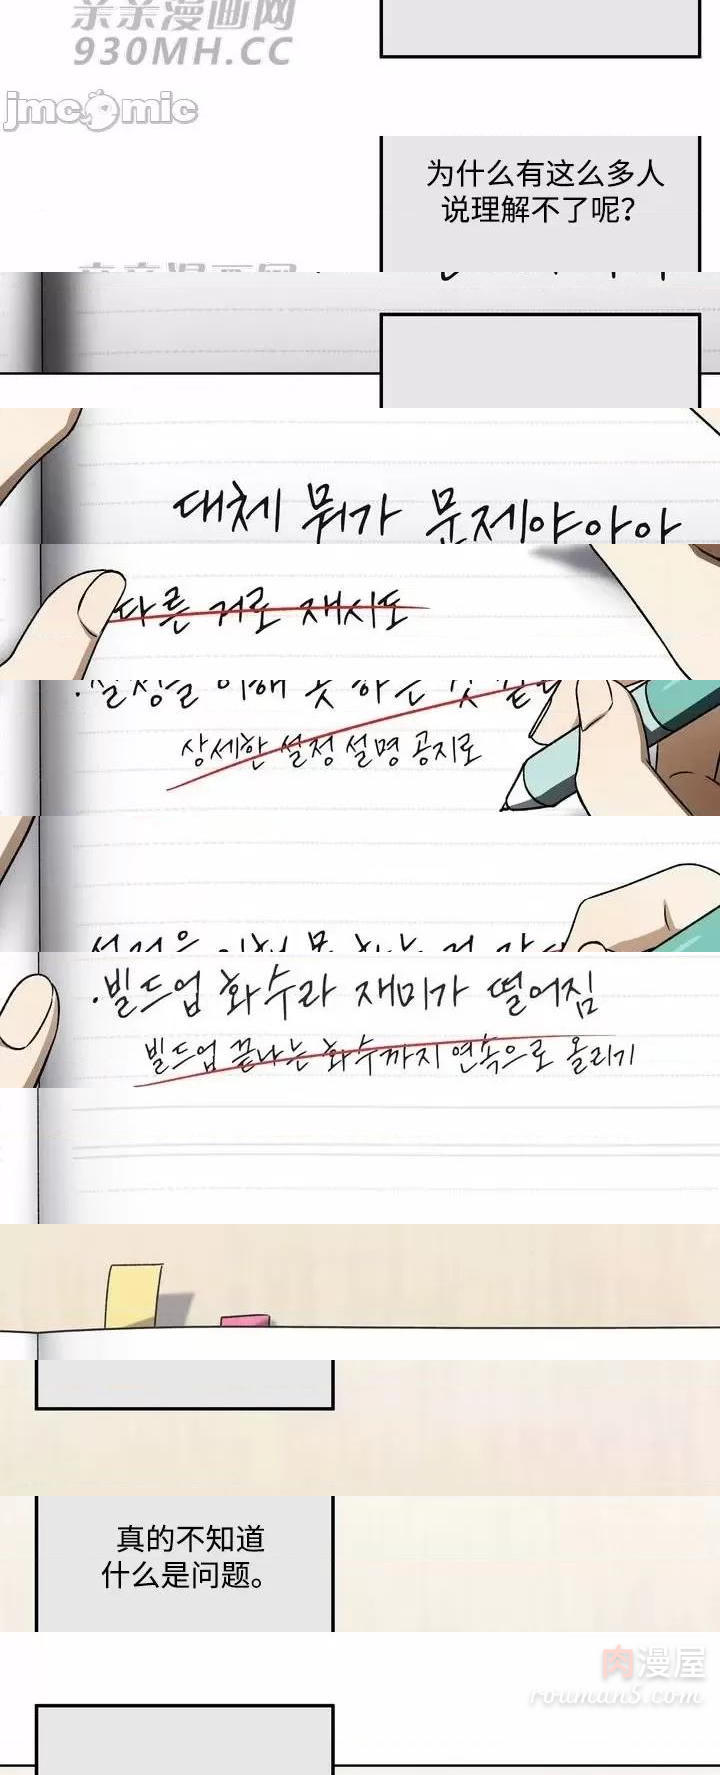 亲亲漫画网
930MH.CC
jmcomic
为什么有这么多人
说理解不了呢？
대체 뭐가 문제야아아
다른 거로 재시도
·설정을 이해 못 하는 것 같다
상세한 설정 설명 공지로
·빌드업 화수라 재미가 떨어짐
빌드업 끝나는 화수까지 연속으로 올리기
真的不知道
什么是问题。
肉漫屋
rouman5.com